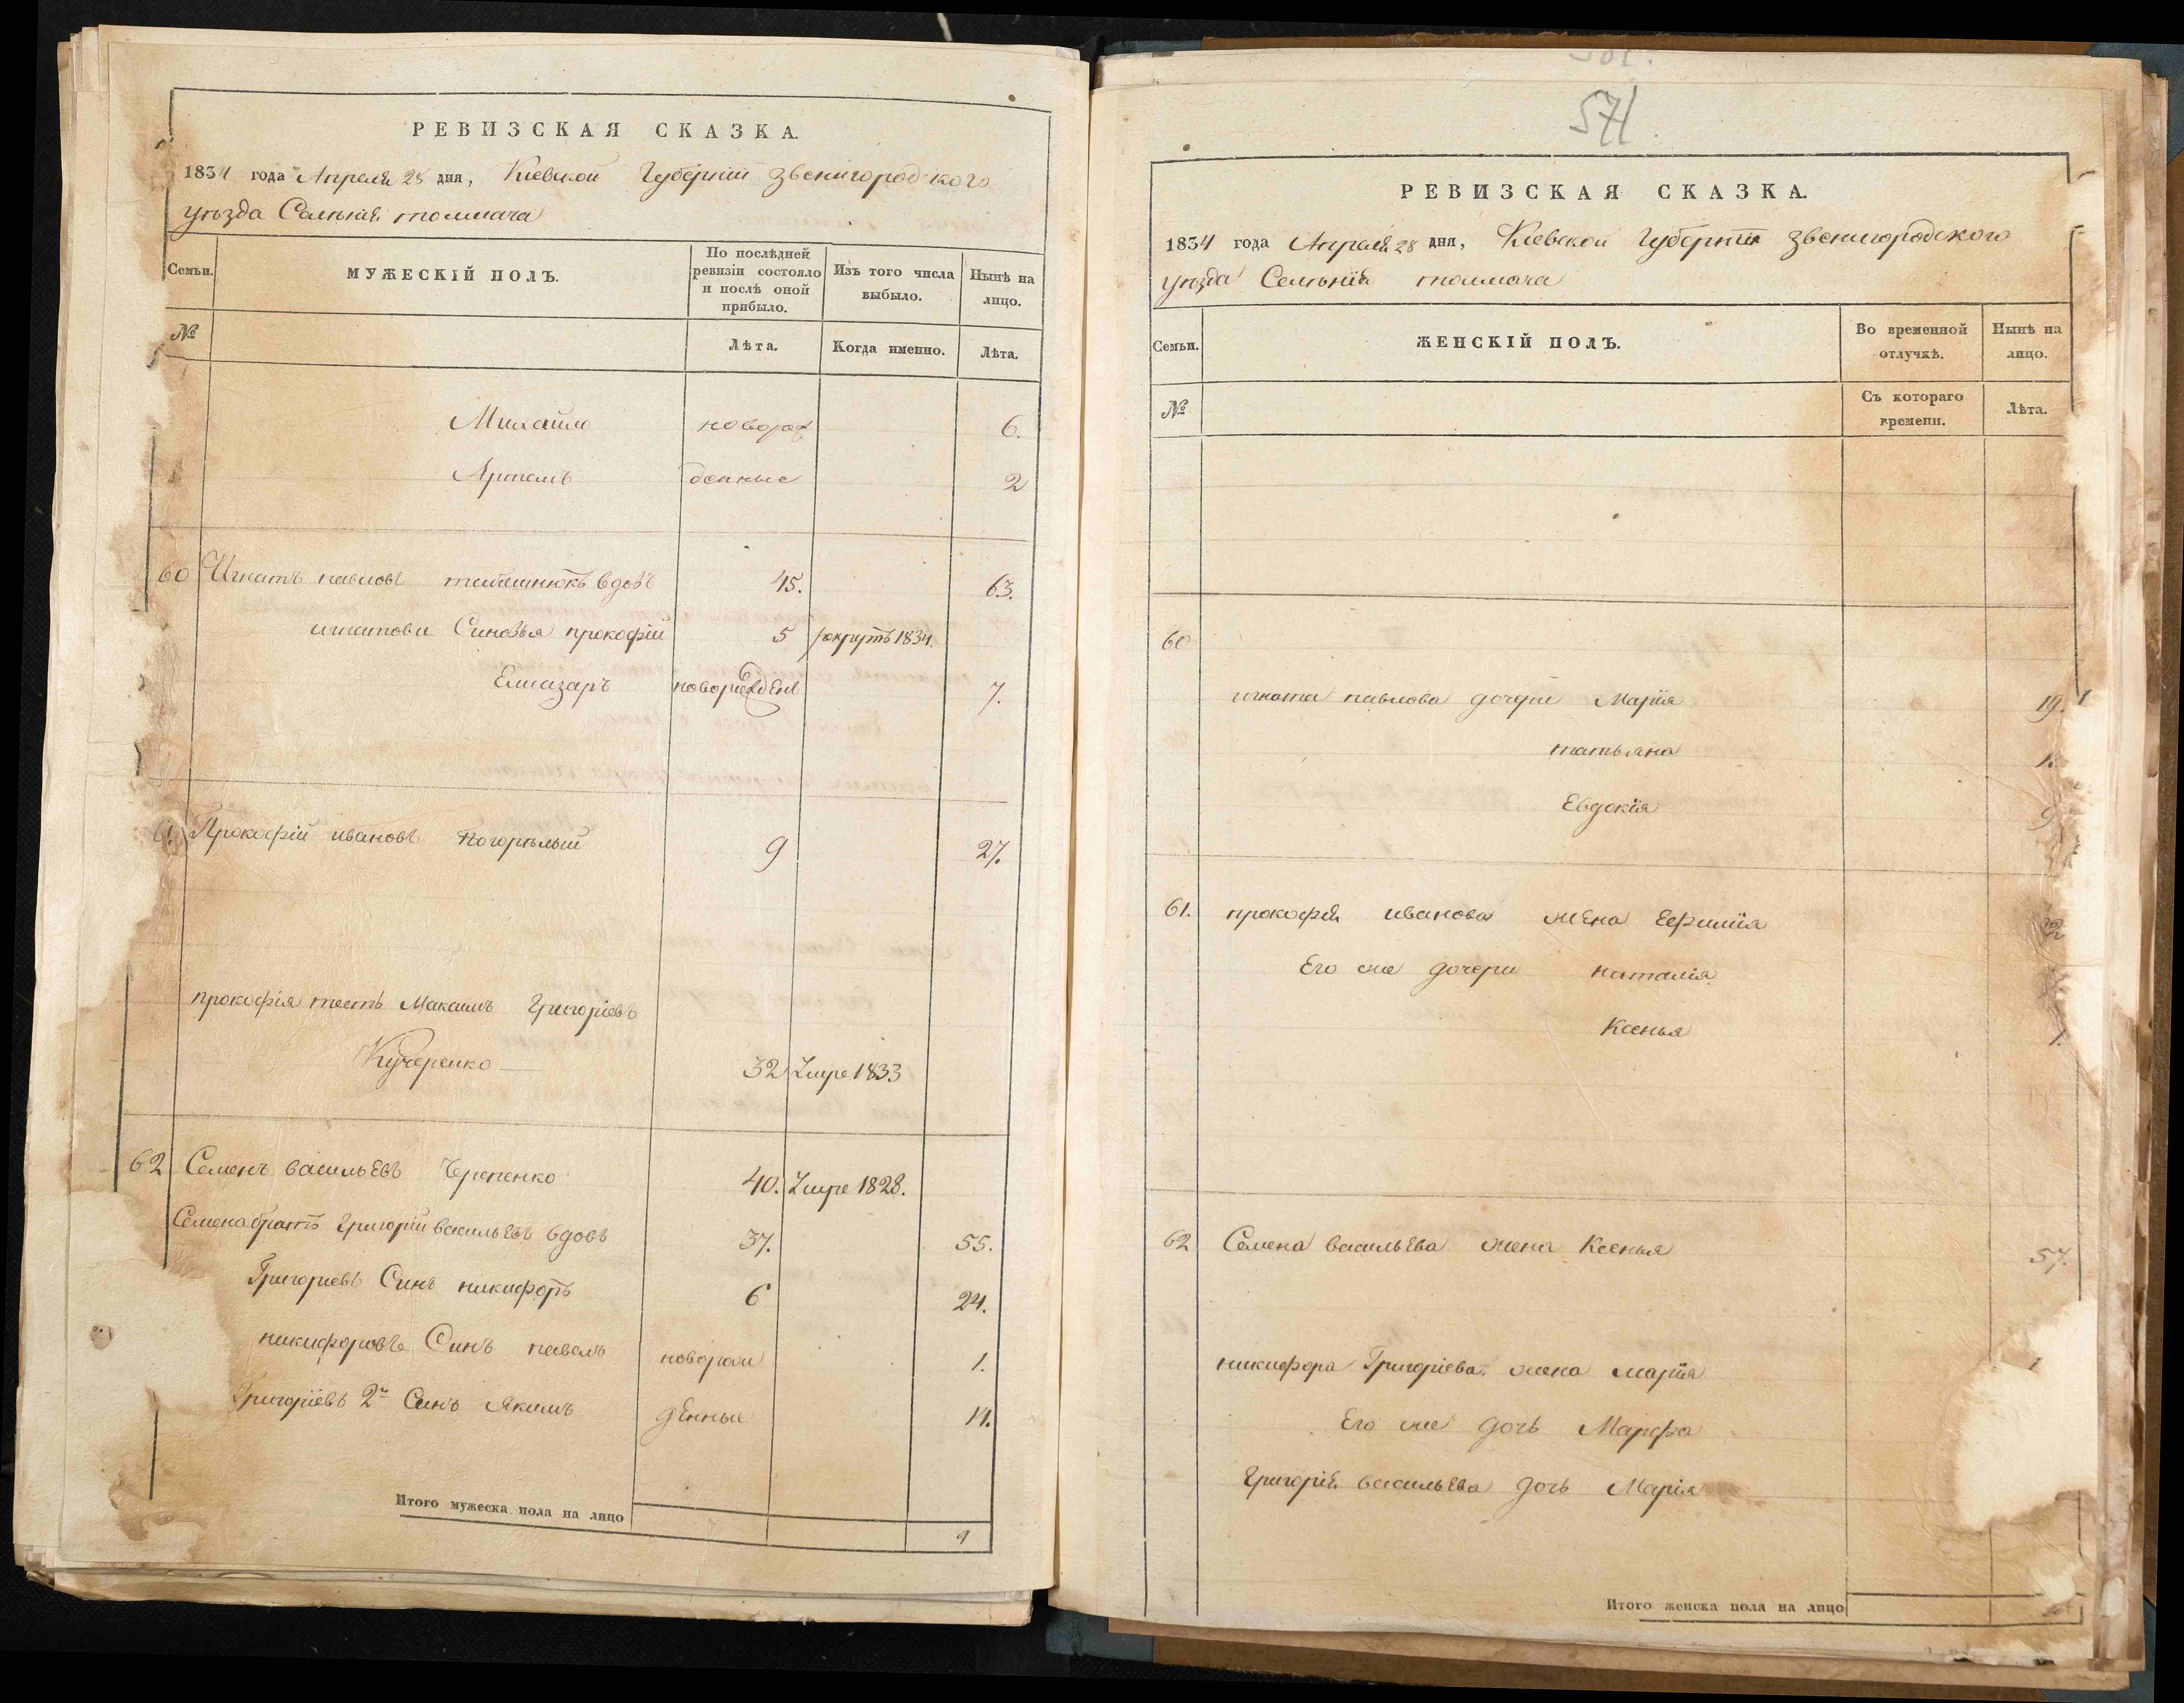 РЕВИЗСКАЯ СКАЗКА.
1834 года Апреля 28 дня, Кіевской Губерніи звенигородского
уѣзда Селенія толмача
Семьи.
МУЖЕСКІЙ ПОЛЪ.
По послѣдней ревизіи состояло и послѣ оной прибыло.
Изъ того числа выбыло.
Нынѣ на лицо.
№
Лѣта.
Когда именно.
Лѣта.
Михайло новорож 6.
Артемъ денные 2
60 Игнатъ павловъ вдовъ 45. 63.
игнатови Синовья прокофій 5 рекрутъ 1834.
Елиазаръ новорожденъ 7.
61. Прокофій ивановъ Погорѣлый 9 27.
прокофія тесть Максимъ Григоріевъ
Кучеренко 32 Умре 1833
62 Семенъ васильевъ Черепенко 40. Умре 1828.
Семена братъ Григорій васильевъ вдовъ 37. 55.
Григориевъ Синъ никифоръ 6 24.
никифоровъ Синъ павелъ новорож 1.
Григоріевъ 2й Синъ Якимъ денные 14.
Итого мужеска пола на лицо 9
571.
РЕВИЗСКАЯ СКАЗКА.
1834 года Апреля 28 дня, Кіевской Губерніи звенигородского
уѣзда Селенія толмача
Семьи.
ЖЕНСКІЙ ПОЛЪ.
Во временной отлучкѣ.
Нынѣ на лицо.
№
Съ котораго времени.
Лѣта.
60
игната павлова дочери Марія 19.
татьяна
Евдокія 9
61. прокофія иванова жена Ефимія
Его же дочери наталія
Ксенья 1.
62 Семена васильева жена Ксенья 57.
никифора Григоріева жена марія
Его же дочь Марфа
Григорія васильева дочь Марія
Итого женска пола на лицо